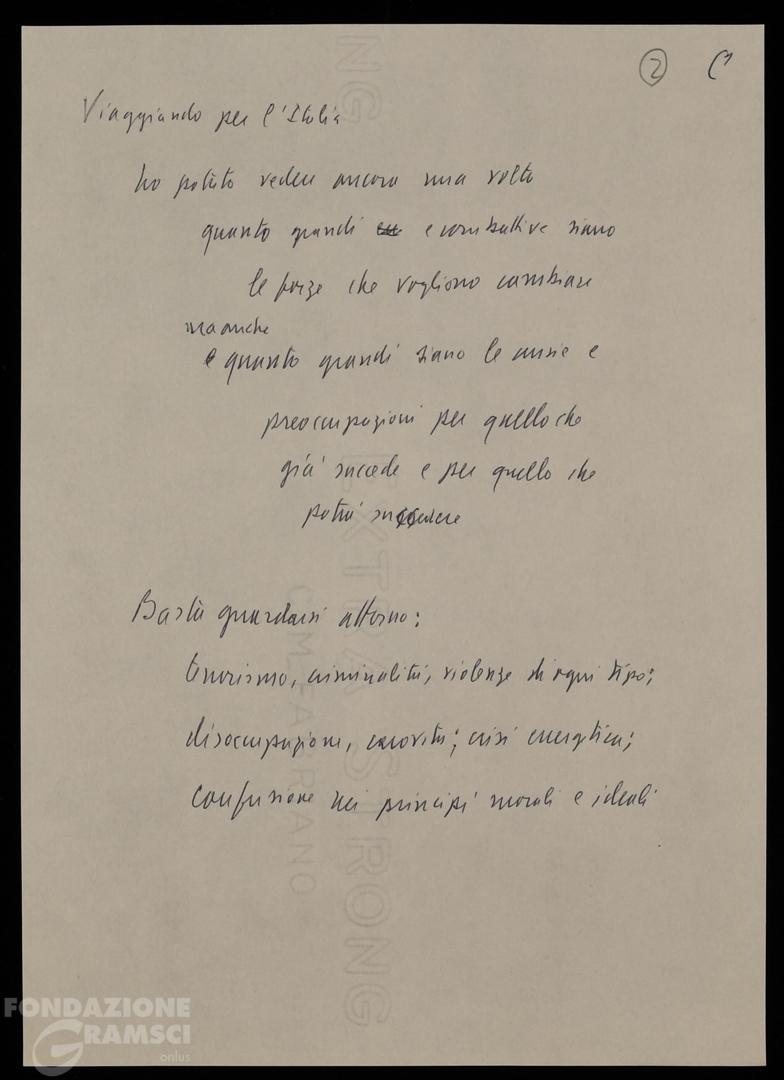 2
Viaggiando per l'Italia
ho potuto vedere ancora una volta
quanto grandi e combattive siano
le forze che vogliono cambiare
ma anche
e quanto grandi siano le ansie e
preoccupazioni per quello che
già succede e per quello che
potrà succedere
Basta guardarsi attorno:
terrorismo, criminalità, violenze di ogni tipo;
disoccupazione, carovita; crisi energetica;
confusione nei principi morali e ideali
EXTRA STRONG
C.M. FABRIANO
FONDAZIONE
GRAMSCI
onlus